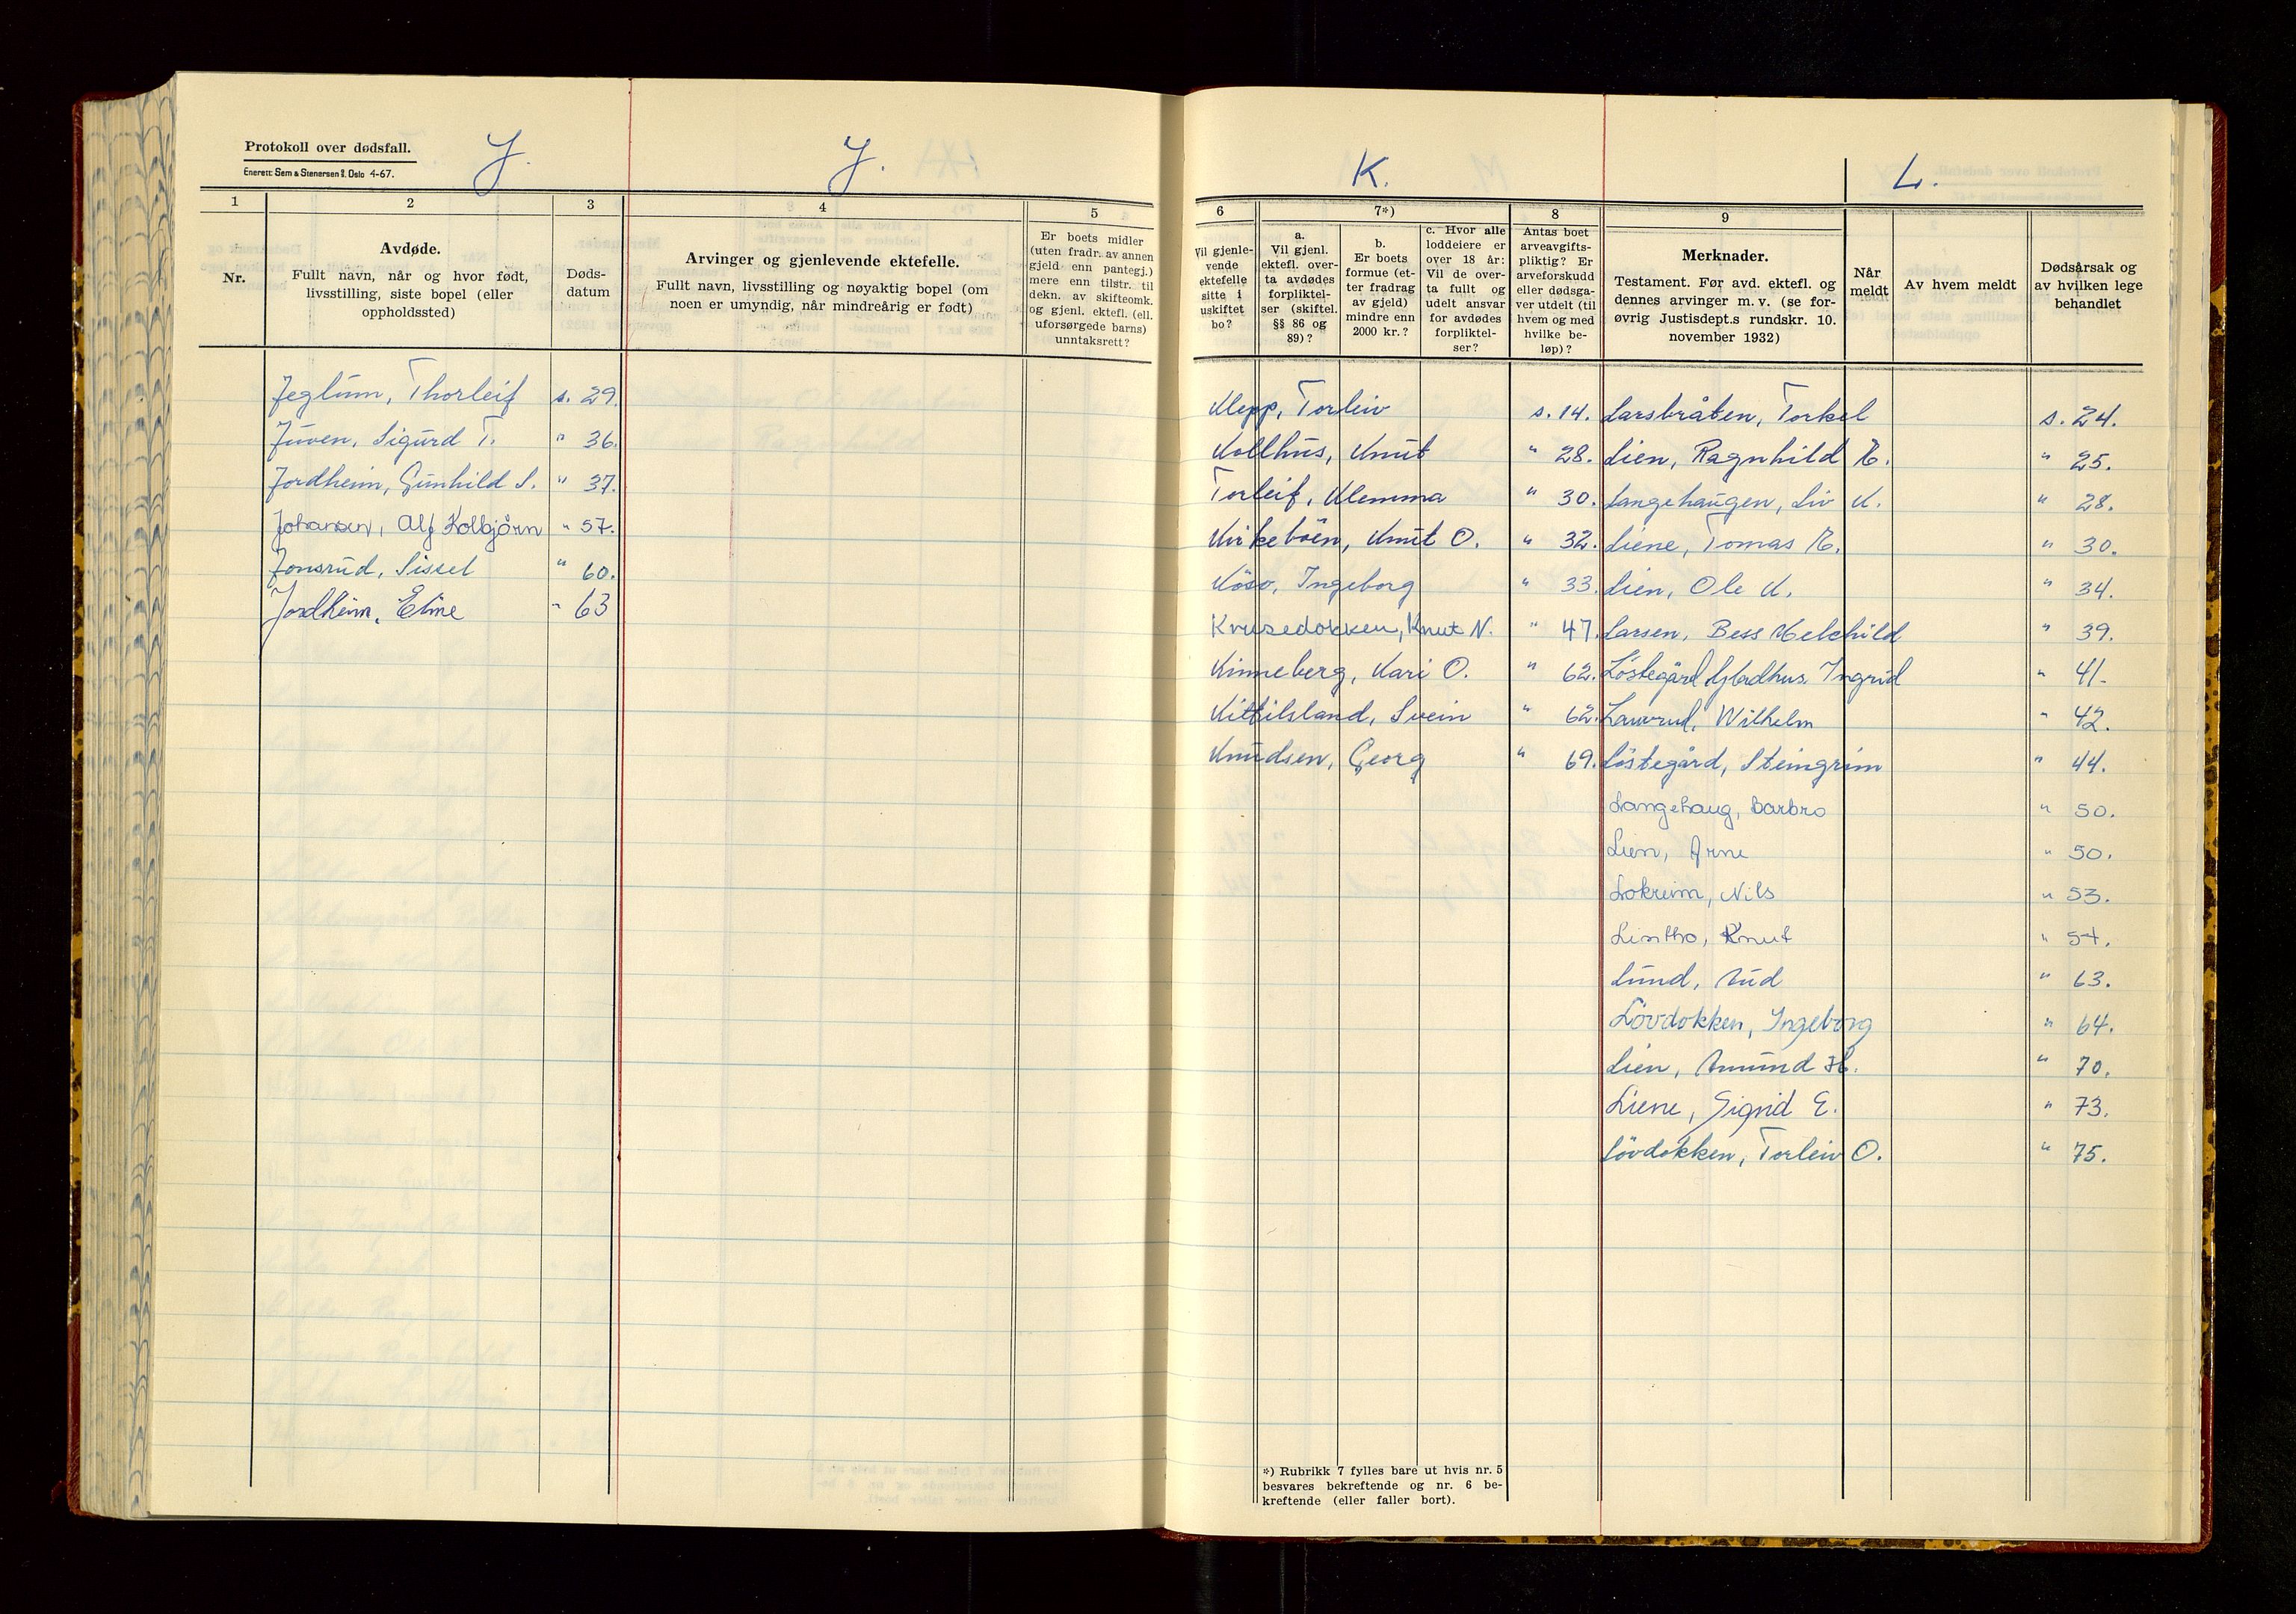 Protokoll over dødsfall.
Enerett: Sem & Stenersen Oslo 4-67.
J.
J.
1
2
3
4
5
Nr.
Avdøde.
Fullt navn, når og hvor født,
livsstilling, siste bopel (eller
oppholdssted)
Døds-
datum
Arvinger og gjenlevende ektefelle.
Fullt navn, livsstilling og nøyaktig bopel (om
noen er umyndig, når mindreårig er født)
Er boets midler
(uten fradr. av annen
gjeld enn pantegj.)
mere enn tilstr. til
dekn. av skifteomk.
og gjenl. ektef. (ell.
uforsørgede barns)
unntaksrett?
Jeglum, Thorleif s. 29.
Juven, Sigurd T. " 36.
Jordheim, Gunhild S. " 37.
Johansen, Alf Kolbjörn " 57.
Jonsrud, Sissel " 60.
Jordheim, Eline " 63
K.
L.
6
7*)
8
9
Vil gjenle-
vende
ektefelle
sitte i
uskiftet
bo?
a.
Vil gjenl.
ektefl. over-
ta avdødes
forpliktel-
ser (skiftel.
§§ 86 og
89)?
b.
Er boets
formue (et-
ter fradrag
av gjeld)
mindre enn
2000 kr.?
c. Hvor alle
loddeiere er
over 18 år:
Vil de over-
ta fullt og
udelt ansvar
for avdødes
forpliktel-
ser?
Antas boet
arveavgifts-
pliktig? Er
arveforskudd
eller dødsga-
ver utdelt (til
hvem og med
hvilke be-
løp)?
Merknader.
Testament. Før avd. ektefl. og
dennes arvinger m. v. (se for-
øvrig Justisdept.s rundskr. 10.
november 1932)
Når
meldt
Av hvem meldt
Dødsårsak og
av hvilken lege
behandlet
Klepp, Torleiv s. 14.
Kollhus, Knut " 28.
Torleif, Klemma " 30.
Kirkeböen, Knut O. " 32.
Köso, Ingeborg " 33.
Krusedokken, Knut N. " 47.
Kinneberg, Kari O. " 62.
Kittilsland, Svein " 62.
Knudsen, Georg " 69.
Larsbråten, Torkel s. 24.
Lien, Ragnhild E. " 25.
Langehaugen, Liv K. " 28.
Liene, Tomas E. " 30.
Lien, Ole K. " 34.
Larsen, Bess Melchild " 39.
Löstegård Gladhus, Ingrid " 41.
Laurud, Wilhelm " 42.
Löstegård, Steingrim " 44.
Langehaug, Barbro " 50.
Lien, Arne " 50.
Lokreim, Nils " 53.
Lintho, Knut " 54.
Lund, Aud " 63.
Lövdokken, Ingeborg " 64.
Lien, Amund H. " 70.
Liene, Sigrid E. " 73.
Lövdokken, Torleiv O. " 75.
*) Rubrikk 7 fylles bare ut hvis nr. 5
besvares bekreftende og nr. 6 be-
kreftende (eller faller bort).